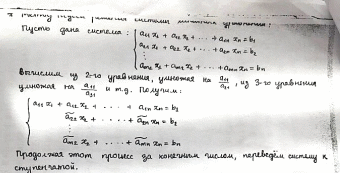 Метод Гаусса решения системы линейных уравнений:
Пусть дана система: { a₁₁ x₁ + a₁₂ x₂ + . . . + a₁ₙ xₙ = b₁
a₂₁ x₁ + a₂₂ x₂ + . . . + a₂ₙ xₙ = b₂
⋮
aₘ₁ x₁ + aₘ₂ x₂ + . . . + aₘₙ xₙ = bₙ
Вычтем из 2-го уравнения, умножая на a₁₁/a₂₁, из 3-го уравнения
умножая на a₁₁/a₃₁ и т.д. Получим:
{ a₁₁ x₁ + a₁₂ x₂ + . . . + a₁ₙ xₙ = b₁
ã₂₂ x₂ + . . . + ã₂ₙ xₙ = b₂
⋮
ãₘ₂ x₂ + . . . + ãₘₙ xₙ = bₙ
Продолжая этот процесс за конечным числом, переведём систему к
ступенчатой.